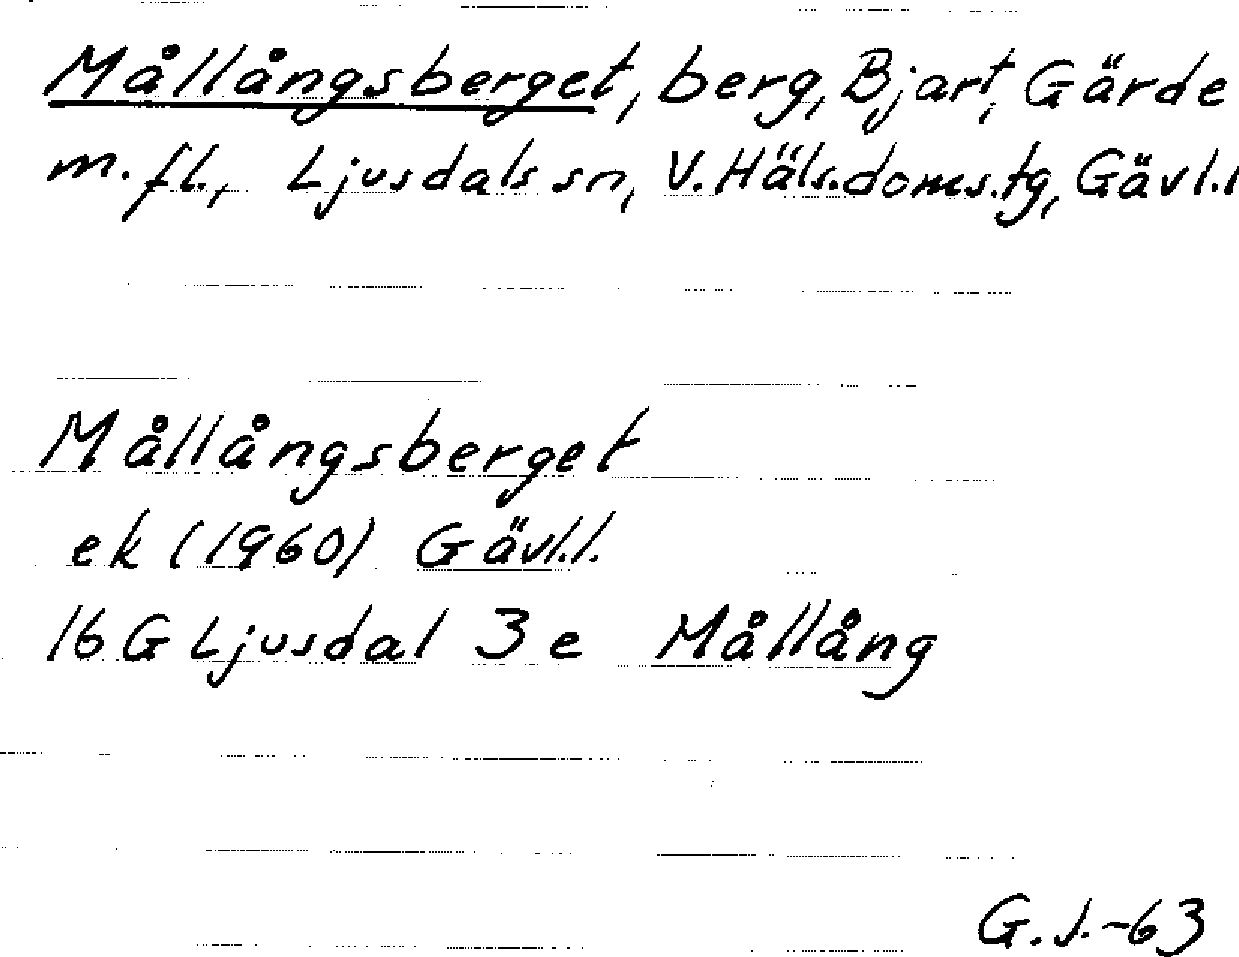 Mållångsberget, berg, Bjart, Gärde
m.fl., Ljusdals sn, V.Häls.doms.tg, Gävl.l
Mållångsberget
ek (1960) Gävl.l.
16 G Ljusdal 3 e Mållång
G.J.-63